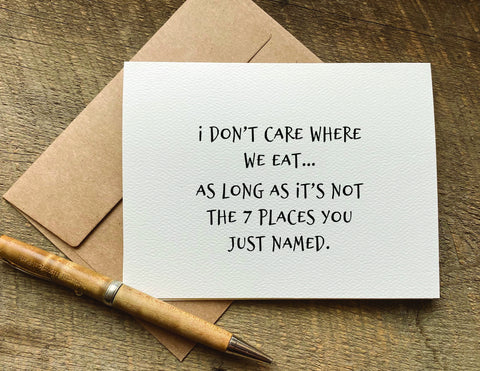 i DON'T CARE WHERE
WE EAT...
AS LONG AS iT'S NOT
THE 7 PLACES YOU
JUST NAMED.